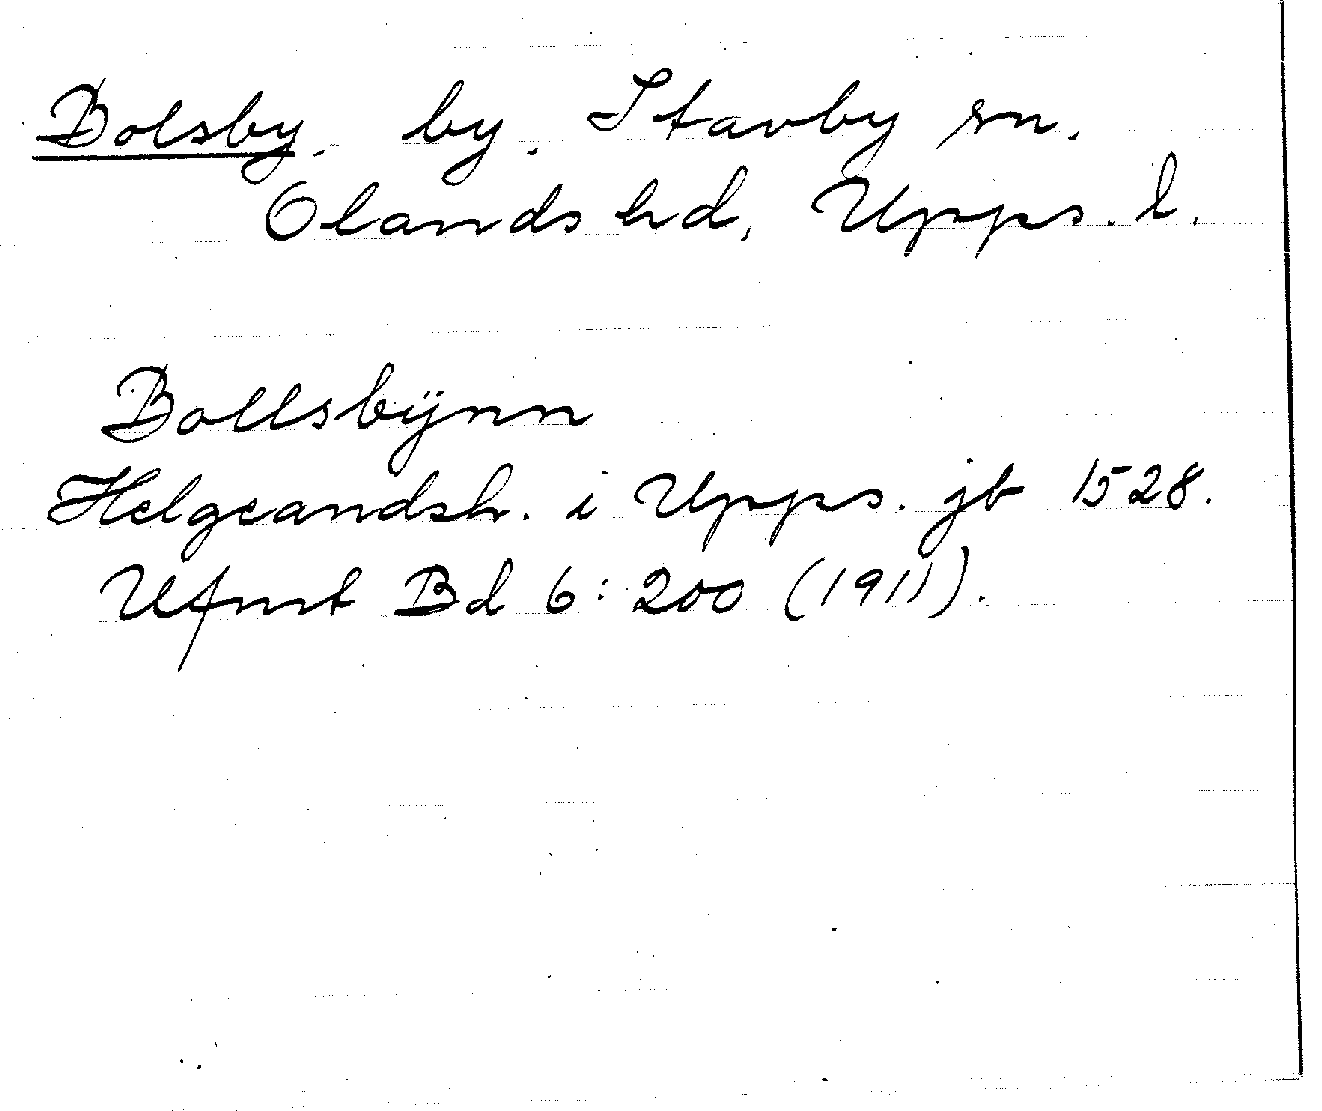 Bolsby. by. Stavby sn.
Olands hd, Upps. l.
Bollsbÿnn
Helgeandsh. i Upps. jb 1528.
Ufmt Bd 6: 200 (1911).